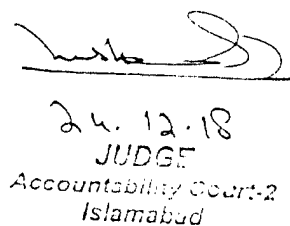 24.12.18
JUDGE
Accountability Court-2
Islamabad